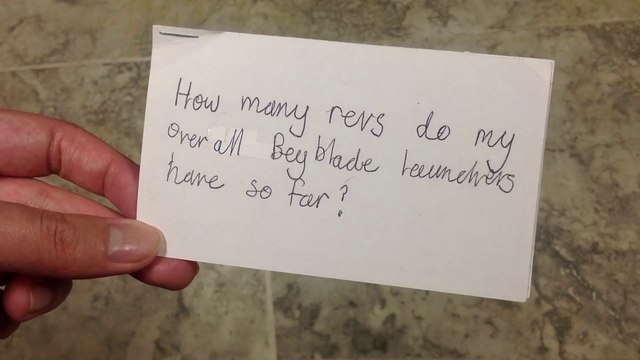 How many revs do my
overall Beyblade launchers
have so far?